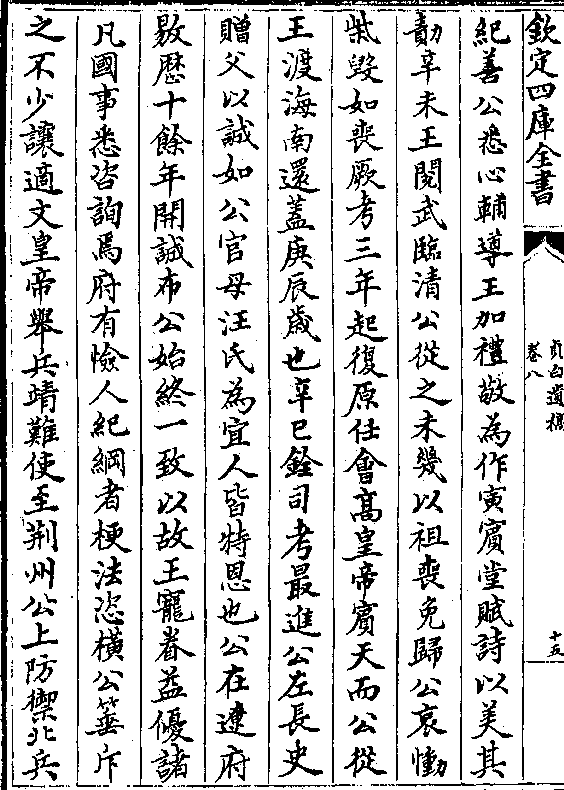 欽定四庫全書
貞白遺稿
卷八
十五
紀善公悉心輔導王加禮敬為作寅賓堂賦詩以美其
勣辛未王閱武臨清公從之未幾以祖喪免歸公哀慟
柴毀如喪厥考三年起復原任會高皇帝賓天而公從
王渡海南還蓋庚辰歲也辛巳銓司考最進公左長史
贈父以誠如公官母汪氏為宜人皆特恩也公在遼府
敭歴十餘年開誠布公始終一致以故王寵眷益優諸
凡國事悉咨詢焉府有憸人紀綱者梗法恣橫公箠斥
之不少讓適文皇帝舉兵靖難使至荆州公上防禦北兵